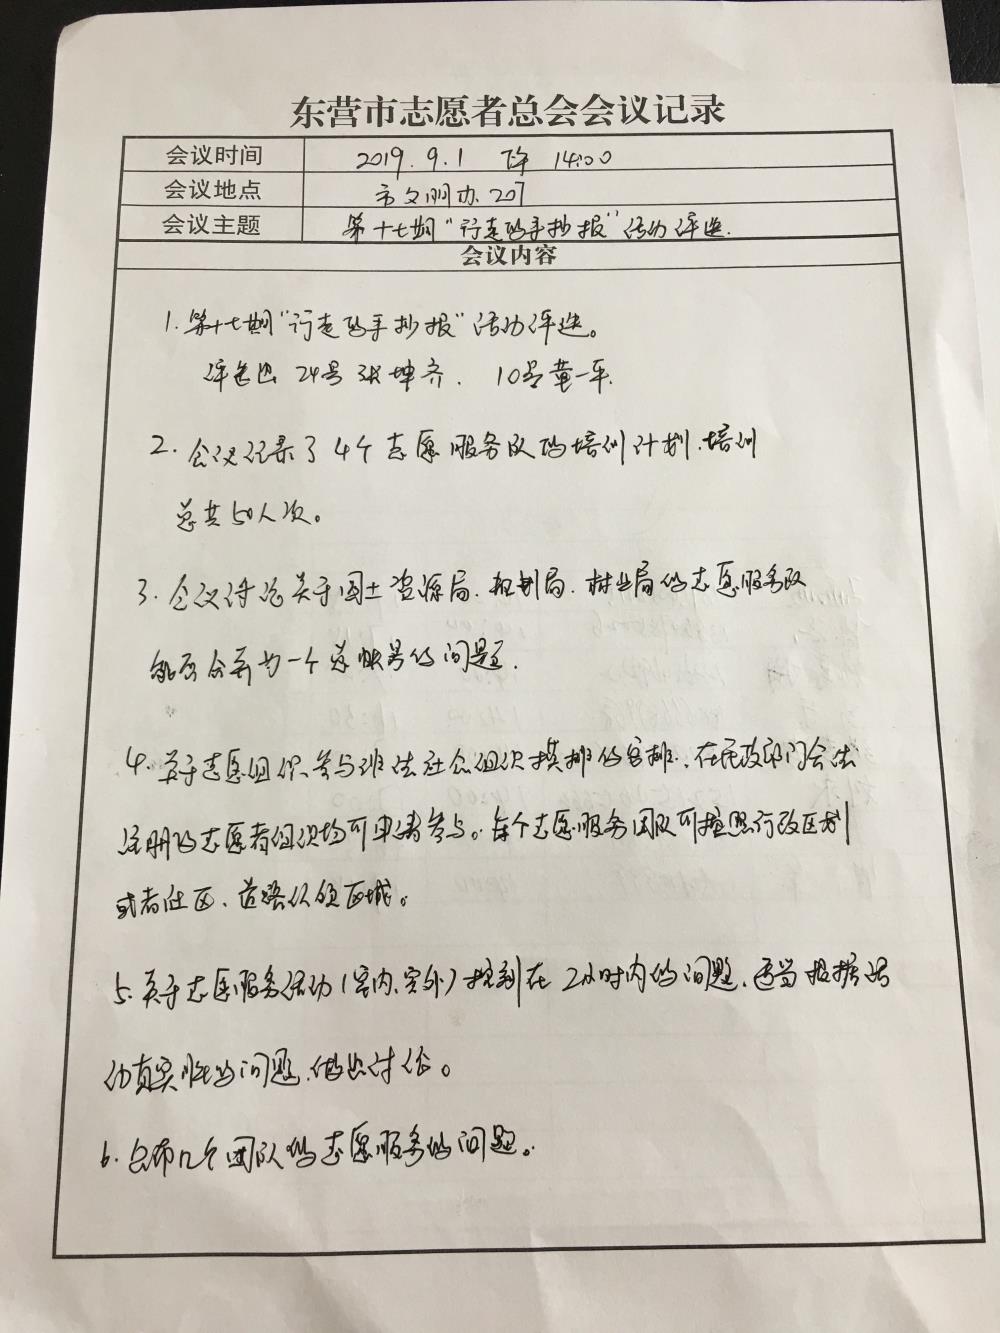 东营市志愿者总会会议记录
会议时间 2019.9.1 下午 14:00
会议地点 市文明办207
会议主题 第十七期“行走的手抄报”活动评选.
会议内容
1.第十七期“行走的手抄报”活动评选。
评选出 24号张坤齐. 10号黄一平.
2.会议记录了4个志愿服务队的培训计划.培训
总共50人次。
3.会议讨论关于国土资源局.规划局.林业局的志愿服务队
能否合并为一个总账号的问题.
4.关于志愿组织参与违法社会组织摸排的安排.在民政部门合法
注册的志愿者组织均可申请参与。每个志愿服务团队可按照行政区划
或者社区、道路认领区域。
5.关于志愿服务活动(室内、室外)控制在2小时内的问题.适当根据活
动真实性的问题.做出讨论。
6.公布几个团队的志愿服务的问题。